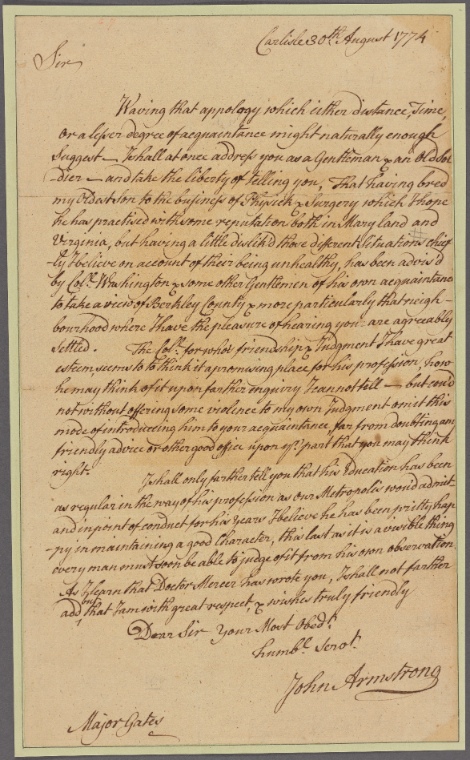 Carlisle 30th August 1774
Sir
Waving that appology which either distance, Time,
or a lesser degree of acquaintance might naturally enough
Suggest — I shall at once address you as a Gentleman & an Old Sol
dier — and take the liberty of telling you, That having bred
my Oldest son to the business of Physick & Surgery which I hope
he has practised with some reputation both in Maryland and
Virginia, but having a little dislik'd those different Situations chief-
ly I believe on account of their being unhealthy, has been advis'd
by Col. Washington & some other Gentlemen of his own acquaintance
to take a view of Berkley County & more particularly that neigh-
bourhood where I have the pleasure of hearing you are agreeably
settled. The Col. for whose friendship & Judgment I have great
esteem, seems to think it a promising place for his profession, how
he may think of it upon farther inquiry I cannot tell — but cou'd
not without offering some violence to my own Judgment omit this
mode of introducing him to your acquaintance, far from doubting any
friendly advice or other good office upon yr. part that you may think
right.
I shall only farther tell you that his Education has been
as regular in the way of his profession as our Metropolis wou'd admit
and in point of conduct for his Years I believe he has been pritty hap
py in maintaining a good Character, this last as it is a visible thing
every man must soon be able to judge of it from his own observation.
As I learn that Doctor Mercer has wrote you, I shall not farther
add, but that I am with great respect, & wishes truly friendly
Dear Sir Your Most Obedt.
humbl. Servt.
John Armstrong
Major Gates